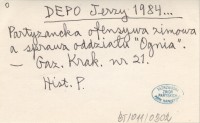 DEPO Jerzy 1984...
Partyzancka ofensywa zimowa
a sprawa oddziału "Ognia".
— Gaz. Krak. nr 21.
Hist. P.